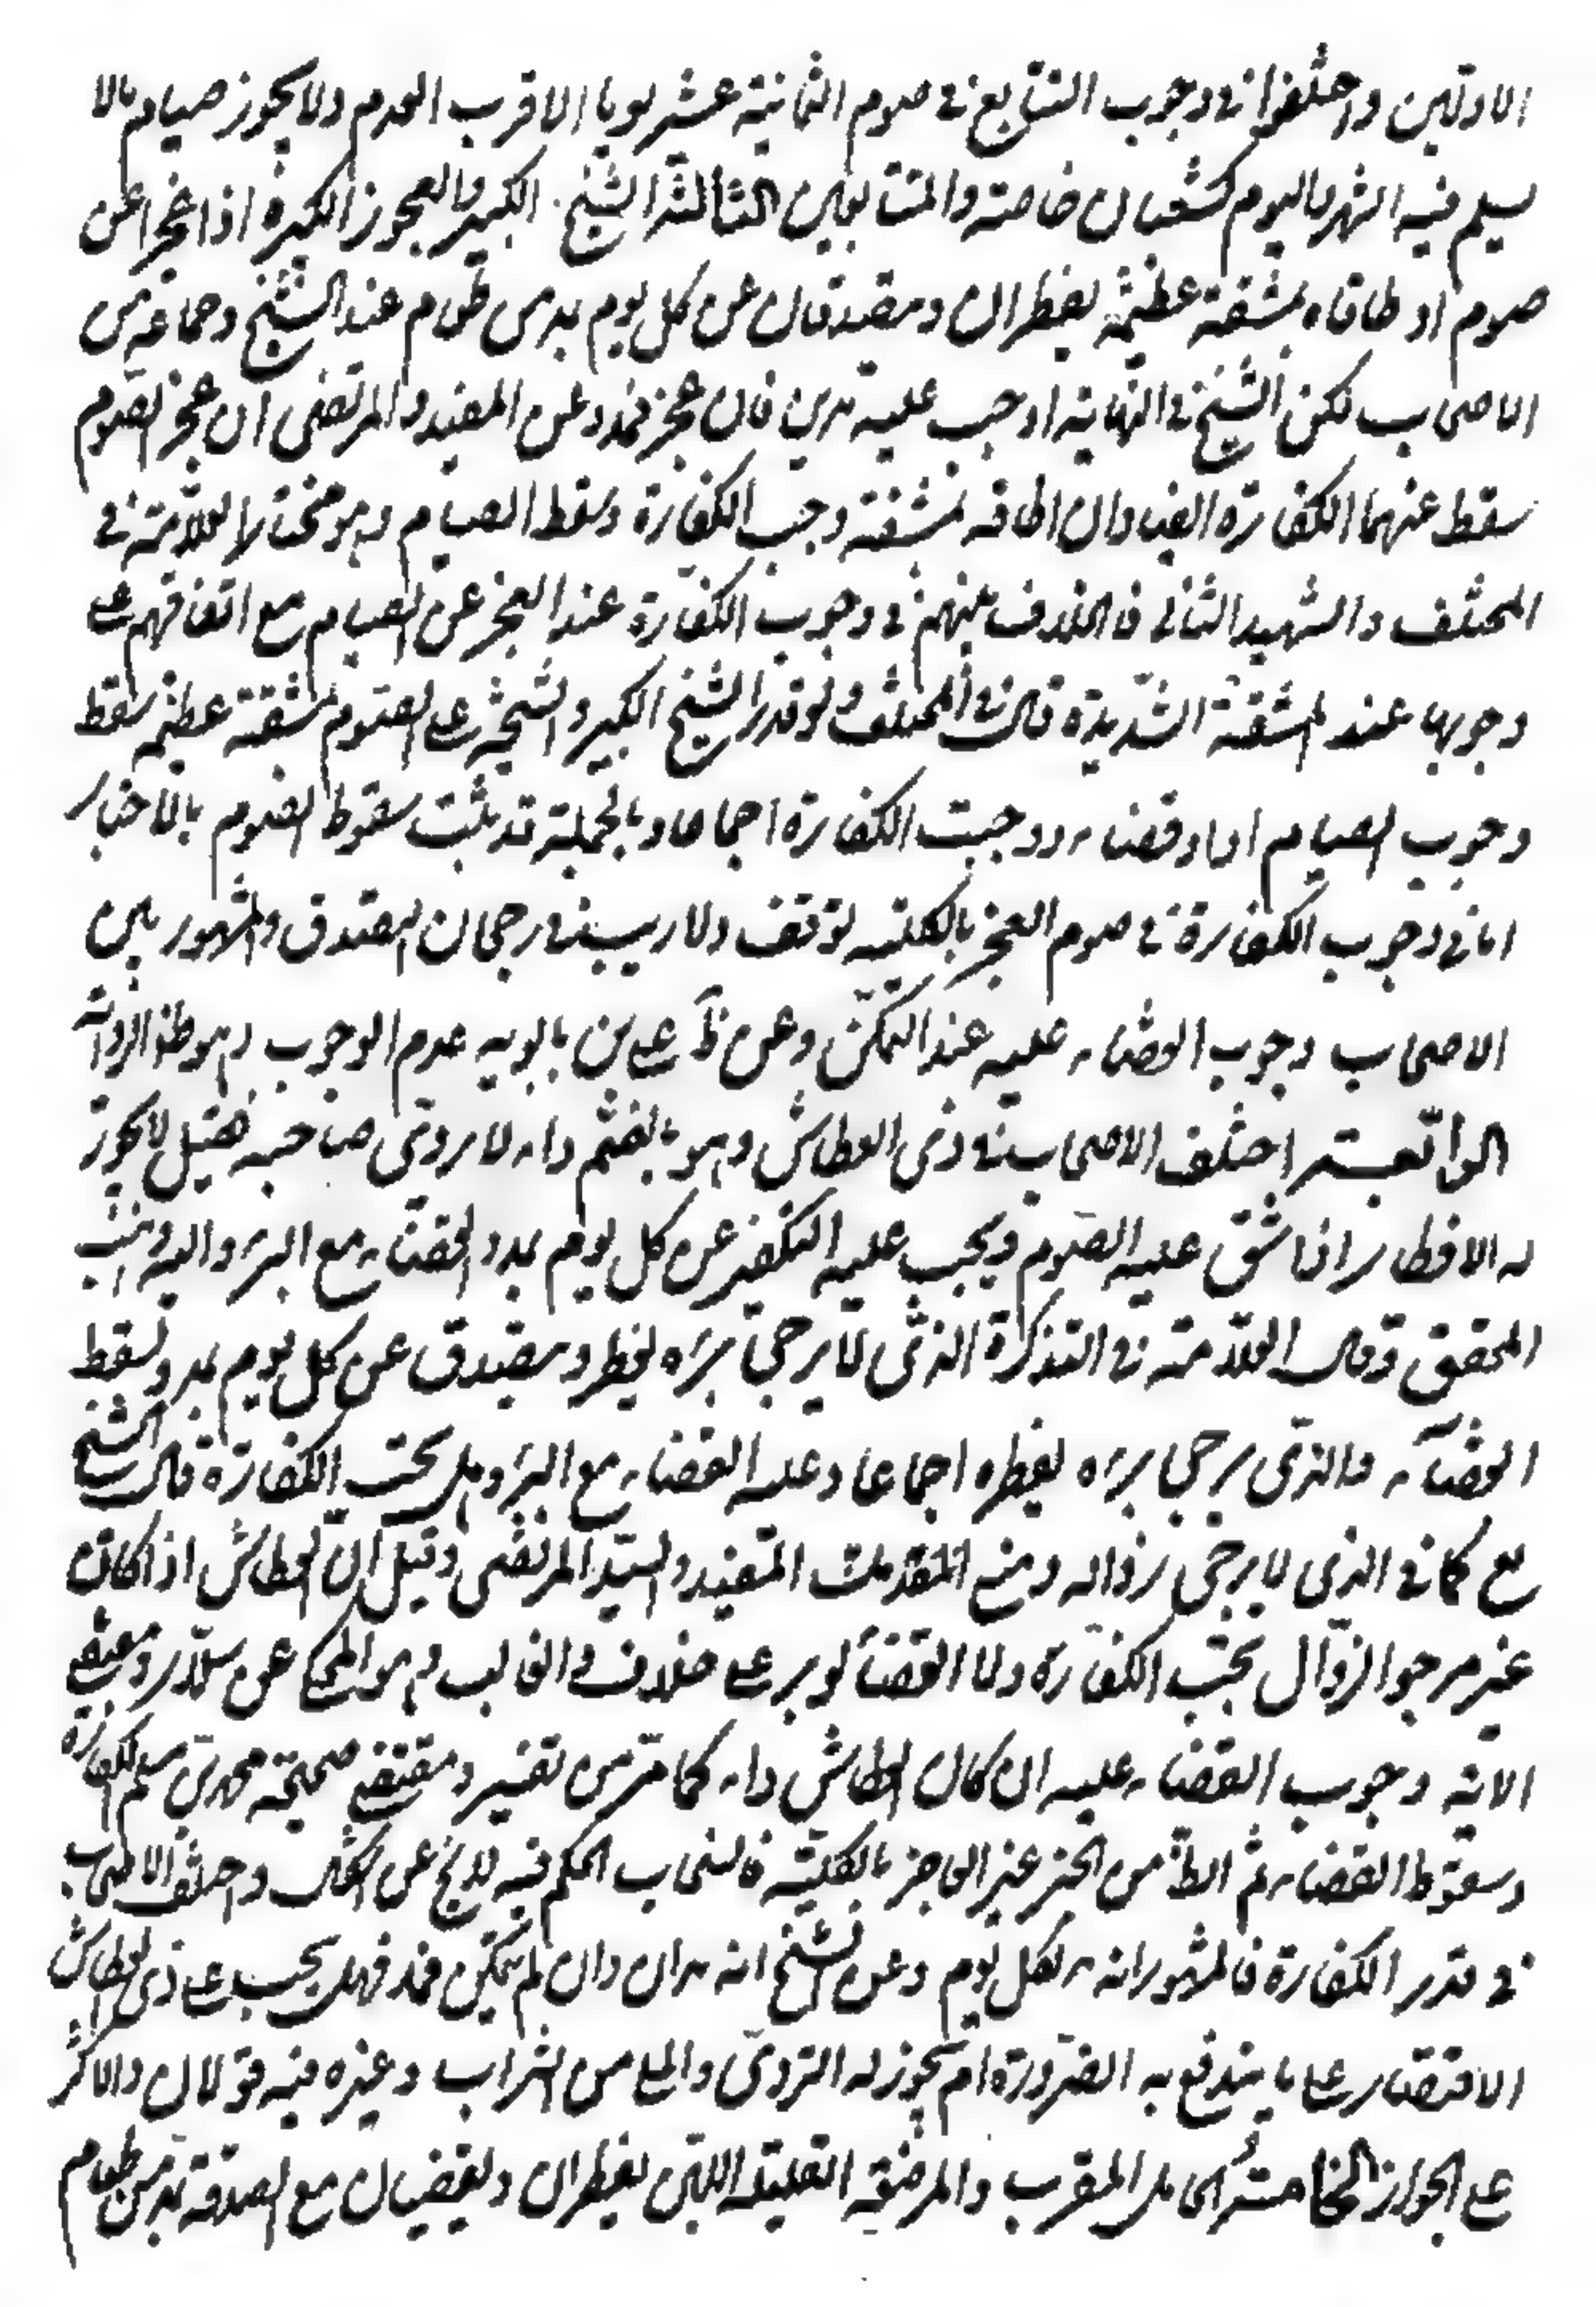 الاولين واختلفوا في وجوب التتابع في صوم الثمانية عشر يوما الاقرب العدم ولا يجوز صيام ما لا
يسلم فيه الشهر واليوم كشعبان خاصة والمتتابعين الثالثة الشيخ الكبير والعجوز الكبيرة اذا عجزا عن
صوم او طاقاه بمشقة عظيمة يفطران ويتصدقان عن كل يوم بمد من طعام عند الشيخ وجماعة من
الاصحاب لكن الشيخ في النهاية اوجب عليه مدين فان عجز فمد وعن المفيد والمرتضى ان عجز الصوم
سقط عنهما الكفارة ايضا وان اطاقه بمشقة وجب الكفارة وسقط الصيام وهو مختار العلامة في
المختلف والشهيد الثاني فالخلاف بينهم في وجوب الكفارة عند العجز عن الصيام مع اتفاقهم على
وجوبها عند المشقة الشديدة قال في المختلف ولو قدر الشيخ الكبير والشيخة على الصوم بمشقة عظيمة سقط
وجوب الصيام اداء وقضاء ووجبت الكفارة اجماعا وبالجملة قد يثبت سقوط الصوم بالاخبار
اما في وجوب الكفارة في صوم العجز بالكلية توقف ولا ريب في رجحان التصدق والمشهور بين
الاصحاب وجوب القضاء عليه عند التمكن وعن علي بن بابويه عدم الوجوب وهو ظ الرواية
الرابعة اختلف الاصحاب في ذي العطاش وهو بالضم داء لا يروى صاحبه فقيل لا يجوز
له الافطار اذا شق عليه الصوم ويجب عليه التكفير عن كل يوم بمد والقضاء مع البرء واليه ذهب
المحقق وقال العلامة في التذكرة الذي لا يرجى برءه يفطر ويتصدق عن كل يوم بمد ويسقط
القضاء والذي يرجى برءه يفطره اجماعا وعليه القضاء مع البرء وهل يجب الكفارة قال الشيخ
نعم كما في الذي لا يرجى زواله ومنع المفيد والسيد المرتضى وقيل ان العطاش اذا كان
غير مرجو الزوال لم يجب الكفارة ولا القضاء لو برء على خلاف الغالب وهو المحكي عن سلار ومقتضى
الاية وجوب القضاء عليه ان كان العطاش داء كما مر من تفسير ومقتضى صحيحة محمد بن مسلم الكفارة
وسقوط القضاء ثم الظ من الخبر غير العاجز بالكلية فانسحاب الحكم فيه لا يخ عن اشكال واختلف الاصحاب
في قدر الكفارة فالمشهور انه مد لكل يوم وعن الشيخ انه مدان وان لم يتمكن فمد فهل يجب على ذي العطاش
الاقتصار على ما يندفع به الضرورة ام يجوز له التروي والملء من الشراب وغيره فيه قولان والاكثر
على الجواز الخامسة الحامل المقرب والمرضعة القليلة اللبن يفطران ويقضيان مع الصدقة بمد من طعام